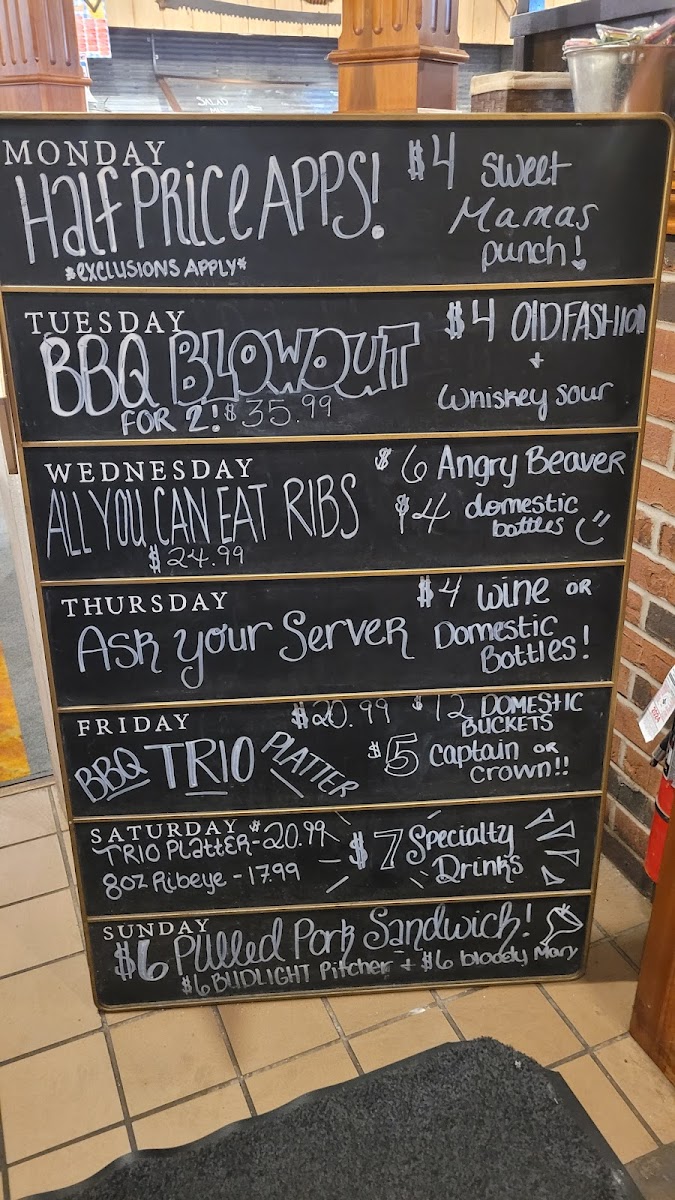 MONDAY
Half Price APPS!
*EXCLUSIONS APPLY*
$4 Sweet
Mamas
punch!
TUESDAY
BBQ BLOWOUT
FOR 2! $35.99
$4 OlDFASHION
+
Whiskey Sour
WEDNESDAY
ALL YOU CAN EAT RIBS
$24.99
$6 Angry Beaver
$4 domestic
bottles
THURSDAY
Ask your Server
$4 wine OR
Domestic
Bottles!
FRIDAY
$20.99
BBQ TRIO PLATTER
$12 DOMESTIC
BUCKETS
$5 Captain OR
Crown!!
SATURDAY
TRIO PlattER - $20.99
8oz Ribeye - 17.99
$7 Specialty
Drinks
SUNDAY
$6 Pulled Pork Sandwich!
$6 BUDLIGHT Pitcher + $6 bloody Mary